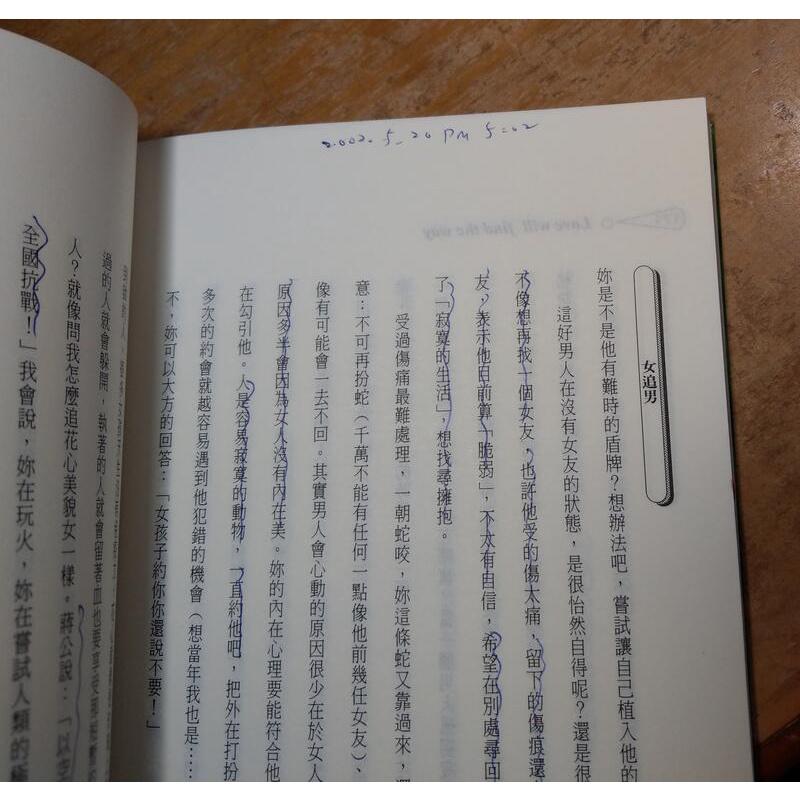 2002. 5_20 PM 5:02
Love will find the way
女追男
妳是不是他有難時的盾牌？想辦法吧，嘗試讓自己植入他的
這好男人在沒有女友的狀態，是很怡然自得呢？還是很
不像想再找一個女友，也許他受的傷太痛，留下的傷痕還
友，表示他目前算「脆弱」，不太有自信，希望在別處尋回
了「寂寞的生活」，想找尋擁抱。
受過傷痛最難處理，一朝蛇咬，妳這條蛇又靠過來，還
意：不可再扮蛇（千萬不能有任何一點像他前幾任女友）、
像有可能會一去不回。其實男人會心動的原因很少在於女人
原因多半會因為女人沒有內在美。妳的內在心理要能符合他
在勾引他。人是容易寂寞的動物，一直約他吧，把外在打扮
多次的約會就越容易遇到他犯錯的機會（想當年我也是……
不，妳可以大方的回答：「女孩子約你你還說不要！」
過的人就會躲開，執著的人就會留著血也要享受那短暫
人？就像問我怎麼追花心美貌女一樣。蔣公說：「以空
全國抗戰！」我會說，妳在玩火，妳在嘗試人類的極